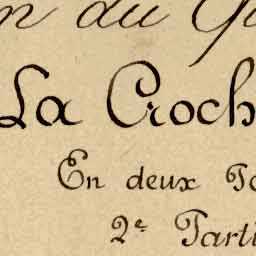 n du
La Croch
En deux
2e Parti